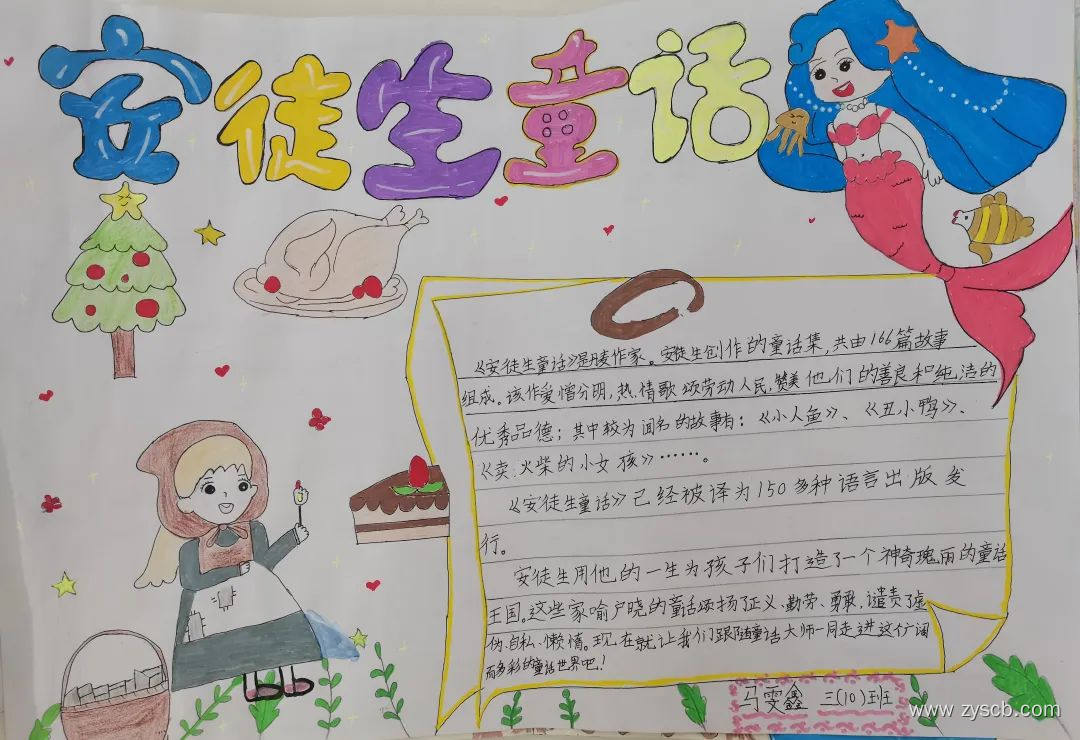 安徒生童话
《安徒生童话》是丹麦作家。安徒生创作的童话集，共由166篇故事
组成。该作爱憎分明，热情歌颂劳动人民，赞美他们的善良和纯洁的
优秀品德；其中较为闻名的故事有：《小人鱼》、《丑小鸭》、
《卖火柴的小女孩》……。
《安徒生童话》已经被译为150多种语言出版发
行。
安徒生用他的一生为孩子们打造了一个神奇瑰丽的童话
王国。这些家喻户晓的童话颂扬了正义、勤劳、勇敢，谴责了虚
伪、自私、懒惰。现在就让我们跟随童话大师一同走进这个广阔
而多彩的童话世界吧！
马雯鑫 三(10)班
www.zyscb.com